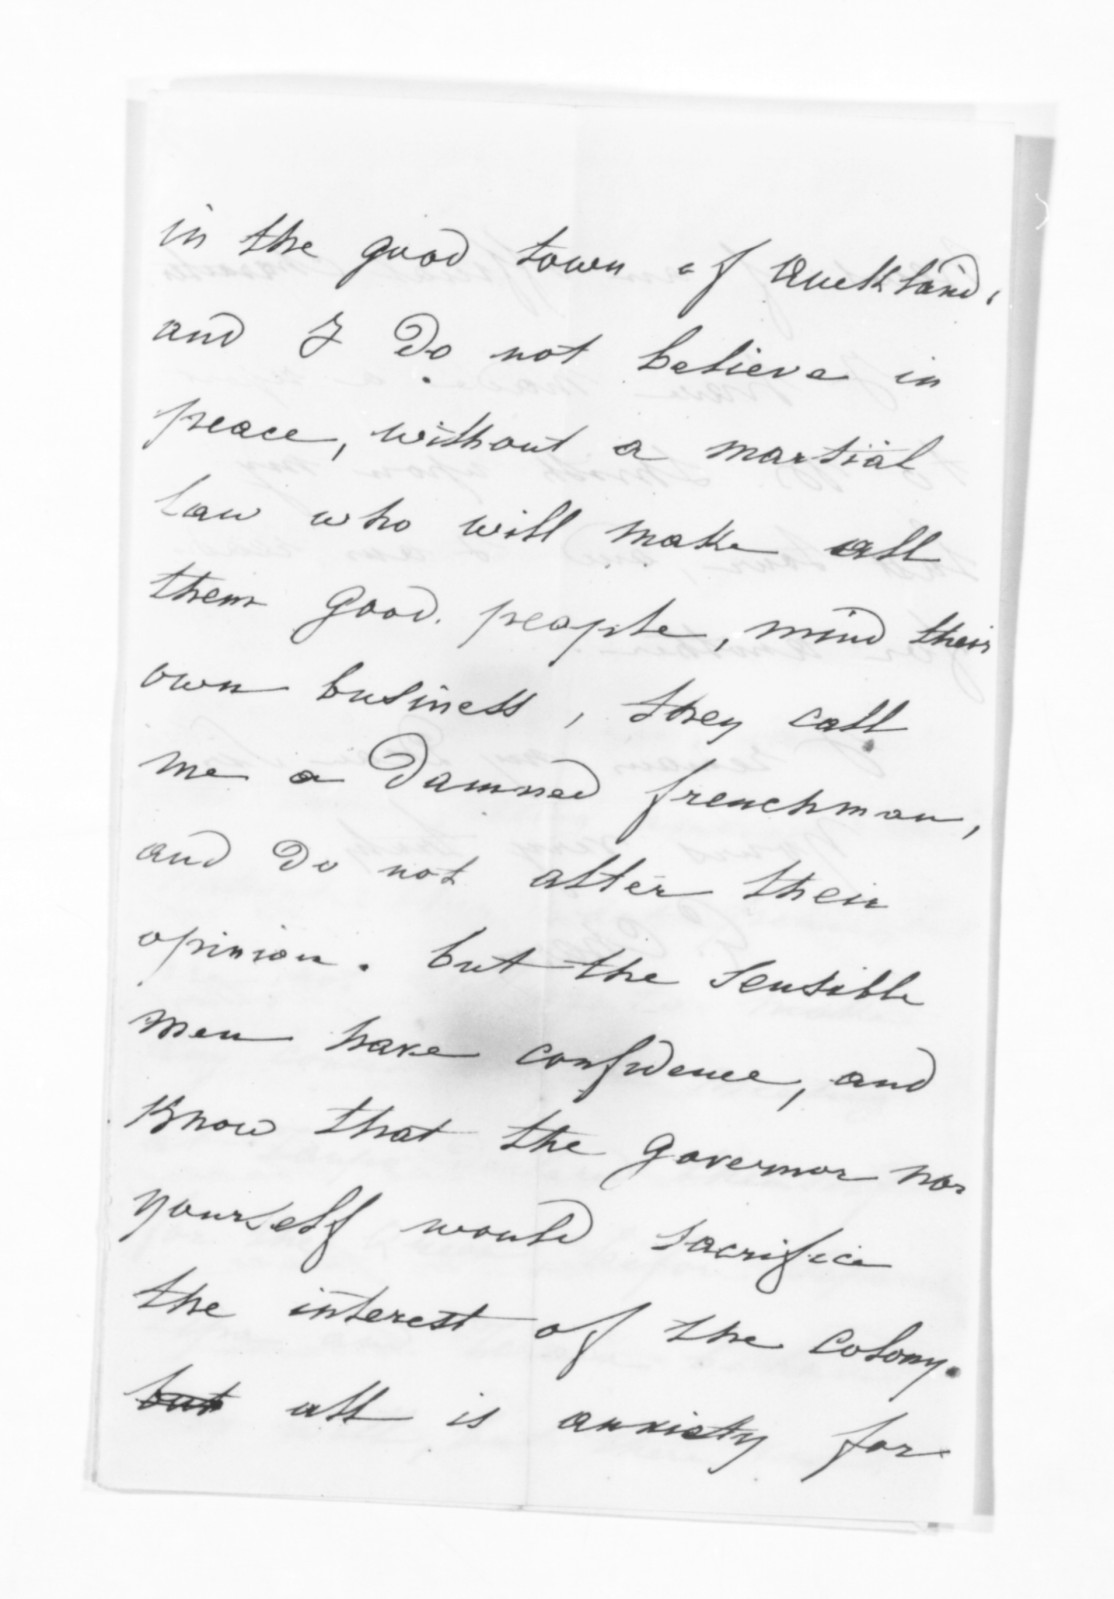 in the good town of Auckland,
and I do not believe in
peace, without a martial
law who will make all
them good. people, mind their
own business, they call
me a damned frenchman,
and do not alter their
opinion. but the sensible
men have confidence, and
know that the governor nor
yourself would sacrifice
the interest of the colony.
but all is anxiety for